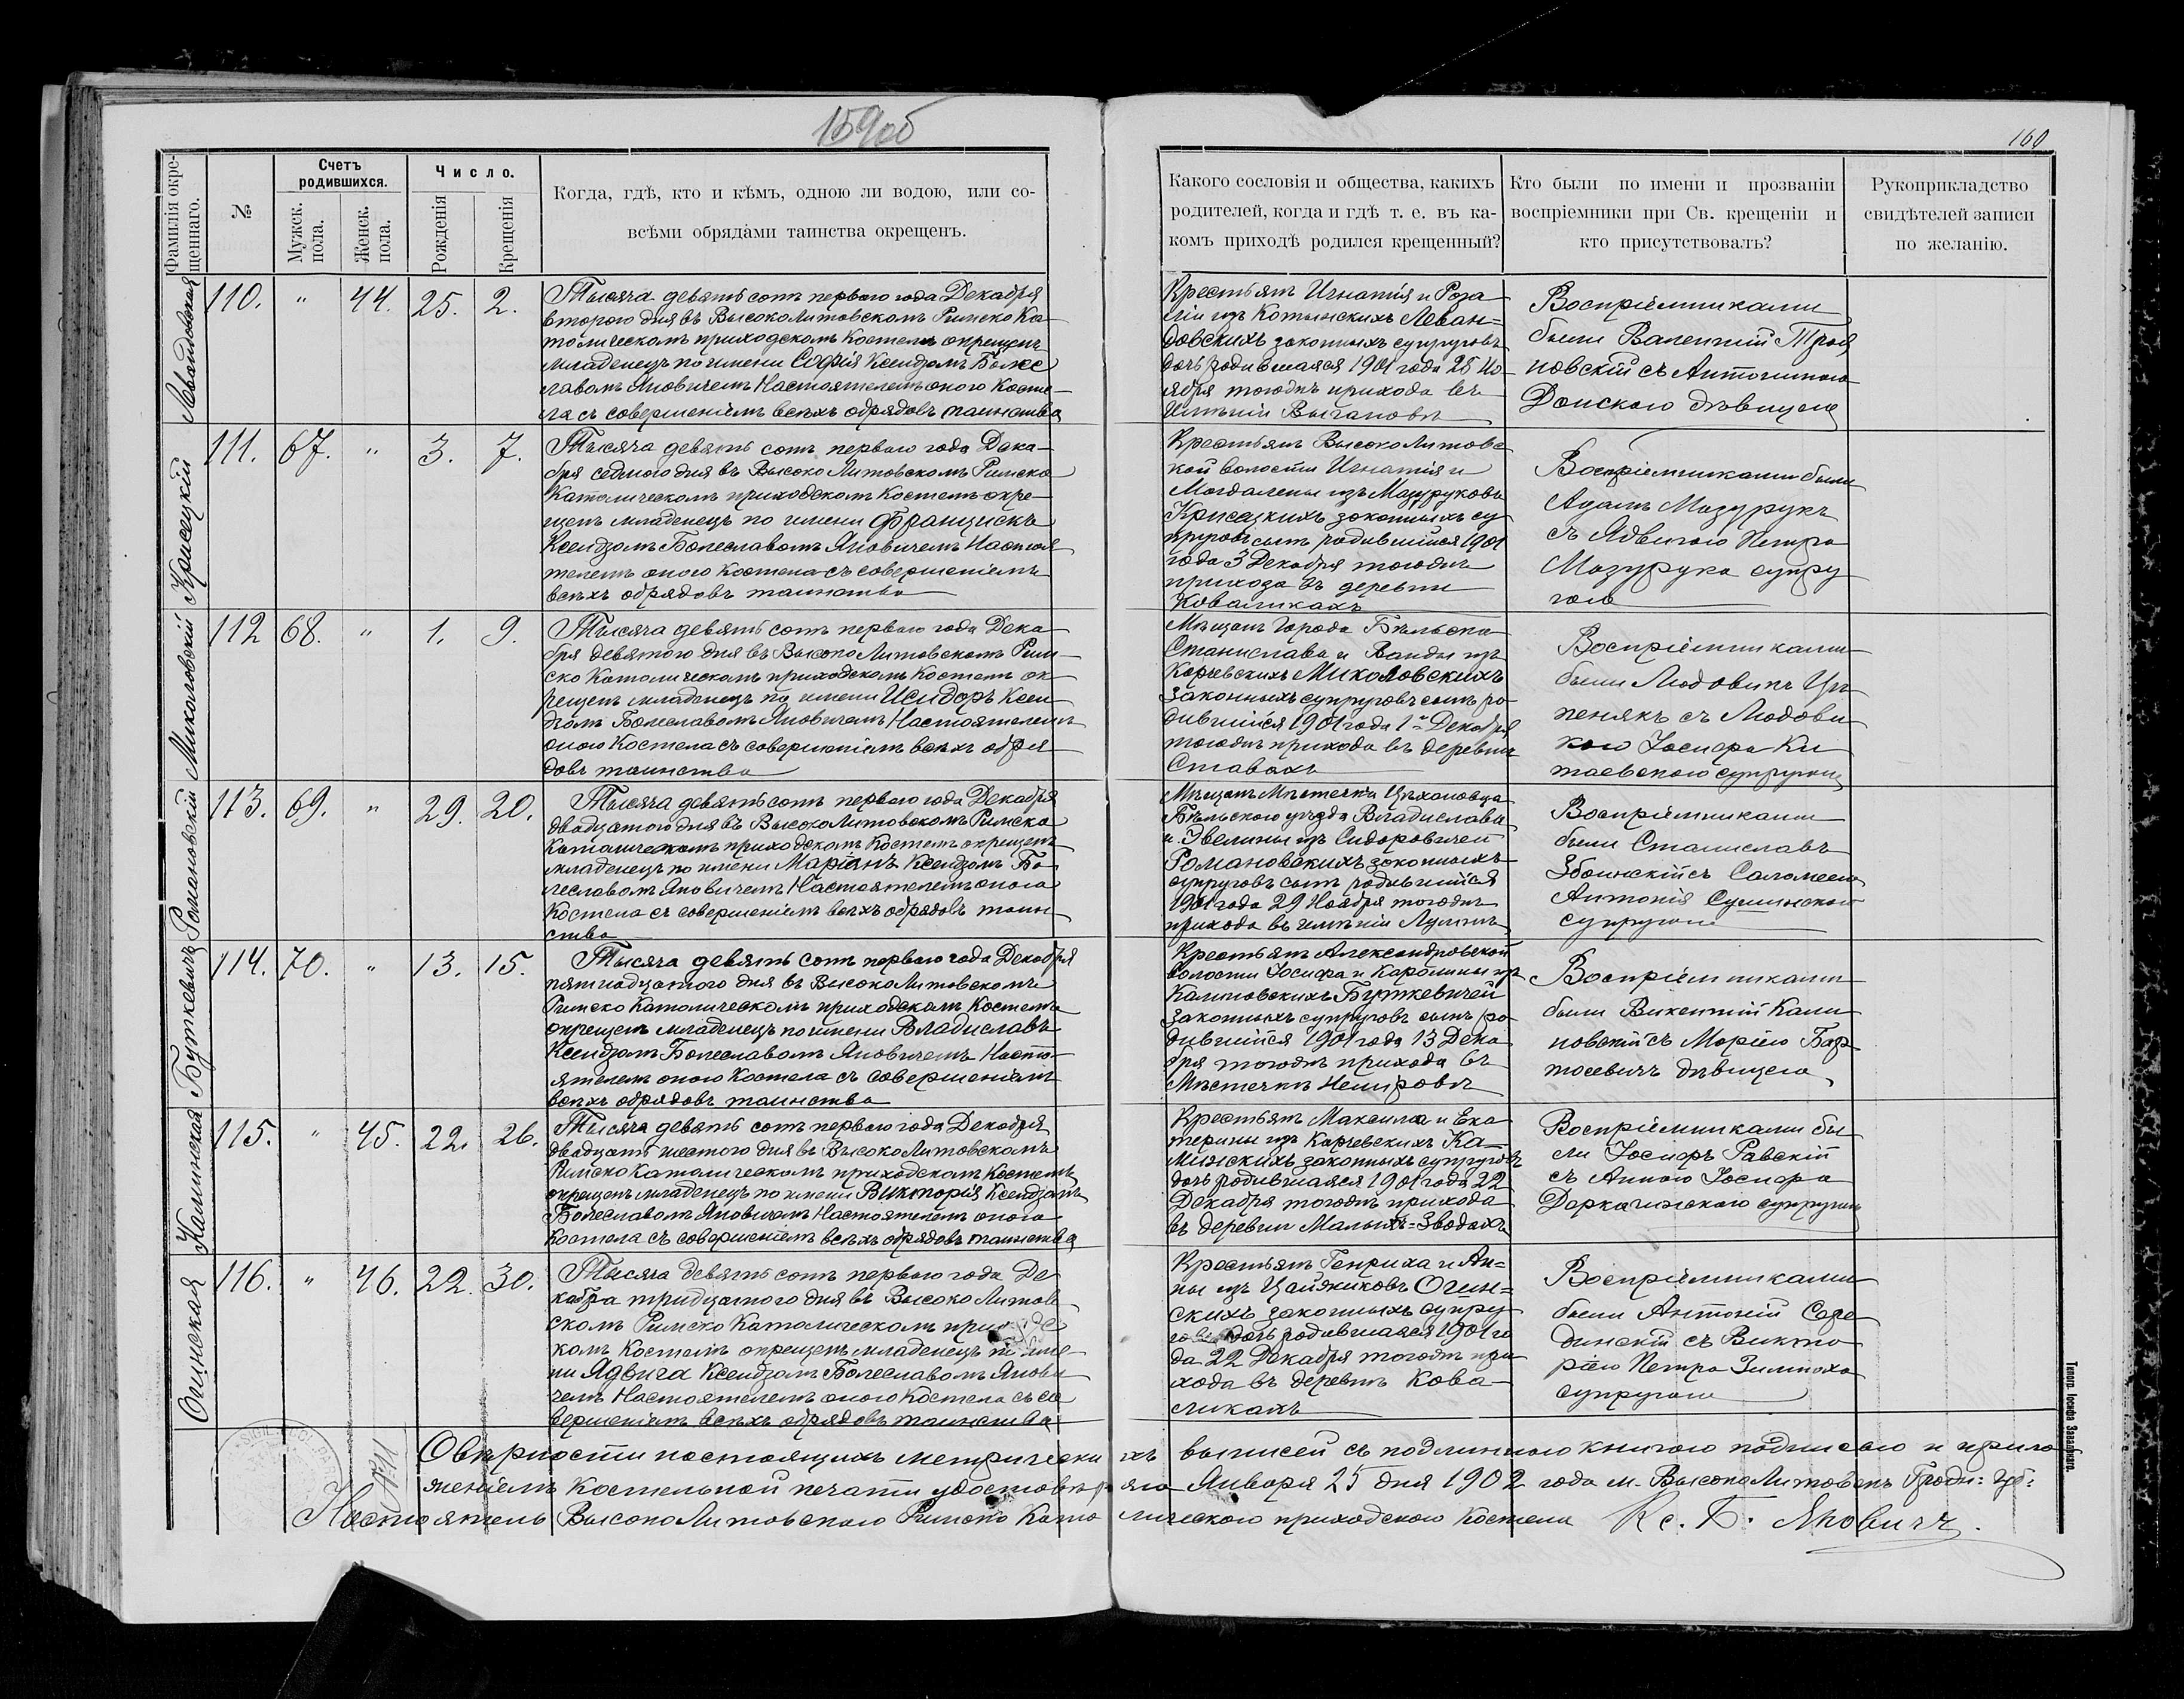 159об
160
Фамилія окре-
щеннаго.
№
Счетъ
родившихся.
Мужск.
пола.
Женск.
пола.
Число.
Рожденія
Крещенія
Когда, гдѣ, кто и кѣмъ, одною ли водою, или со-
всѣми обрядами таинства окрещенъ.
Какого сословія и общества, какихъ
родителей, когда и гдѣ т. е. въ ка-
комъ приходѣ родился крещенный?
Кто были по имени и прозваніи
воспріемники при Св. крещеніи и
кто присутствовалъ?
Рукоприкладство
свидѣтелей записи
по желанію.
Левандовская
110. " 44. 25. 2.
Тысяча девять сотъ перваго года Декабря
второго дня въ Высоко Литовскомъ Римско Ка-
толическомъ приходскомъ Костелѣ окрещенъ
младенецъ по имени Софія Ксендзомъ Боле
славомъ Яновичемъ Настоятелемъ оного Косте-
ла съ совершеніемъ всѣхъ обрядовъ таинства
Крестьянъ Игнатія и Роза
ліи изъ Котынскихъ Леван=
довскихъ законныхъ супруговъ
дочь родившаяся 1901 года 25 Но-
ября тогожъ прихода въ
имѣніи
Воспріемниками
были Валентій
новскій съ Антониною
Донскою дѣвицею
Крисецкій
111. 67. " 3. 7.
Тысяча девять сотъ перваго года Дека-
бря седмого дня въ Высоко Литовскомъ Римско
Католическомъ приходскомъ Костелѣ окре-
щенъ младенецъ по имени Францискъ
Ксендзомъ Болеславомъ Яновичемъ Настоя
телемъ оного Костела съ совершеніемъ
всѣхъ обрядовъ таинства
Крестьянъ Высоко Литовс
кой волости Игнатія и
Магдалены изъ Мазуруковъ
Крисецкихъ законныхъ су
пруговъ сынъ родившійся 1901
года 3 Декабря тогожъ
прихода въ деревни
Коваликахъ
Воспріемниками были
Адамъ Мазурукъ
съ Ядвигою Петра
Мазурука супру
гою
Миколовскій
112 68. " 1. 9.
Тысяча девять сотъ перваго года Дека
бря девятого дня въ Высоко Литовскомъ Рим-
ско Католическомъ приходскомъ Костелѣ ок-
рещенъ младенецъ по имени Исидоръ Ксен
дзомъ Болеславомъ Яновичемъ Настоятелемъ
оного Костела съ совершеніемъ всѣхъ обря
довъ таинства
Мѣщанъ Города Бѣльска
Станислава и Ванды изъ
Карчевскихъ Миколовскихъ
законныхъ супруговъ сынъ ро
дившійся 1901 года 1го Декабря
тогожъ прихода въ деревни
Ставахъ
Воспріемниками
были Людовикъ
пенякъ съ Людови
кою Іосифа Ки
таевского супругою
Романовскій
113. 69. " 29. 20.
Тысяча девять сотъ перваго года Декабря
двадцатого дня въ Высоко Литовскомъ Римско
Католическомъ приходскомъ Костелѣ окрещенъ
младенецъ по имени Маріанъ Ксендзомъ Бо
леславомъ Яновичемъ Настоятелемъ оного
Костела съ совершеніемъ всѣхъ обрядовъ таин
ства
Мѣщанъ Мѣстечка Цѣхановца
Бѣльского уѣзда Владислава
и Эвелины изъ Сидоровичей
Романовскихъ законныхъ
супруговъ сынъ родившійся
1901 года 29 Ноября тогожъ
прихода въ имѣніи
Воспріемниками
были Станиславъ
Збоинскій съ Саломеею
Антонія Сушинского
супругою
Буткевичъ
114. 70. " 13. 15.
Тысяча девять сотъ перваго года Декабря
пятнадцатого дня въ Высоко Литовскомъ
Римско Католическомъ приходскомъ Костелѣ
окрещенъ младенецъ по имени Владиславъ
Ксендзомъ Болеславомъ Яновичемъ Насто-
ятелемъ оного Костела съ совершеніемъ
всѣхъ обрядовъ таинства
Крестьянъ Александровской
волости Іосифа и Каролины изъ
Калиновскихъ Буткевичей
законныхъ супруговъ сынъ ро
дившійся 1901 года 13 Дека
бря тогожъ прихода въ
Мѣстечкѣ Немировѣ
Воспріемниками
были Викентій Кали
новскій съ Маріею Бар
тосевичъ дѣвицею
Каминская
115. " 45. 22. 26.
Тысяча девять сотъ перваго года Декабря
двадцать шестого дня въ Высоко Литовскомъ
Римско Католическомъ приходскомъ Костелѣ
окрещенъ младенецъ по имени Викторія Ксендзомъ
Болеславомъ Яновичемъ Настоятелемъ оного
Костела съ совершеніемъ всѣхъ обрядовъ таинства
Крестьянъ Максима и Ека
терины изъ Карчевскихъ Ка-
минскихъ законныхъ супруговъ
дочь родившаяся 1901 года 22
Декабря тогожъ прихода
въ деревни Малыхъ=Зводахъ
Воспріемниками бы
ли Іосифъ Равскій
съ Анною Іосифа
Деркачинского супругою
Огинская
116. " 46. 22. 30.
Тысяча девять сотъ перваго года Де
кабря тридцатого дня въ Высоко Литов
скомъ Римско Католическомъ приходс
комъ Костелѣ окрещенъ младенецъ по име
ни Ядвига Ксендзомъ Болеславомъ Янови
чемъ Настоятелемъ оного Костела съ со
вершеніемъ всѣхъ обрядовъ таинства
Крестьянъ Генриха и Ан=
ны изъ Огин=
скихъ законныхъ супру
говъ дочь родившаяся 1901 го
да 22 Декабря тогожъ при
хода въ деревнѣ Кова-
ликахъ
Воспріемниками
были Антоній
динскій съ Викто
ріею Петра
супругою
О вѣрности настоящихъ метрическихъ выписей съ подлинною книгою подписью и прило
женіемъ Костельной печати удостовѣряю Января 25 дня 1902 года м. Высоко Литовскъ Гродн: губ:
Настоятель Высоко Литовского Римско Католического приходского Костела Кс. Б. Яновичъ.
Типогр. Іосифа Завадзкаго.